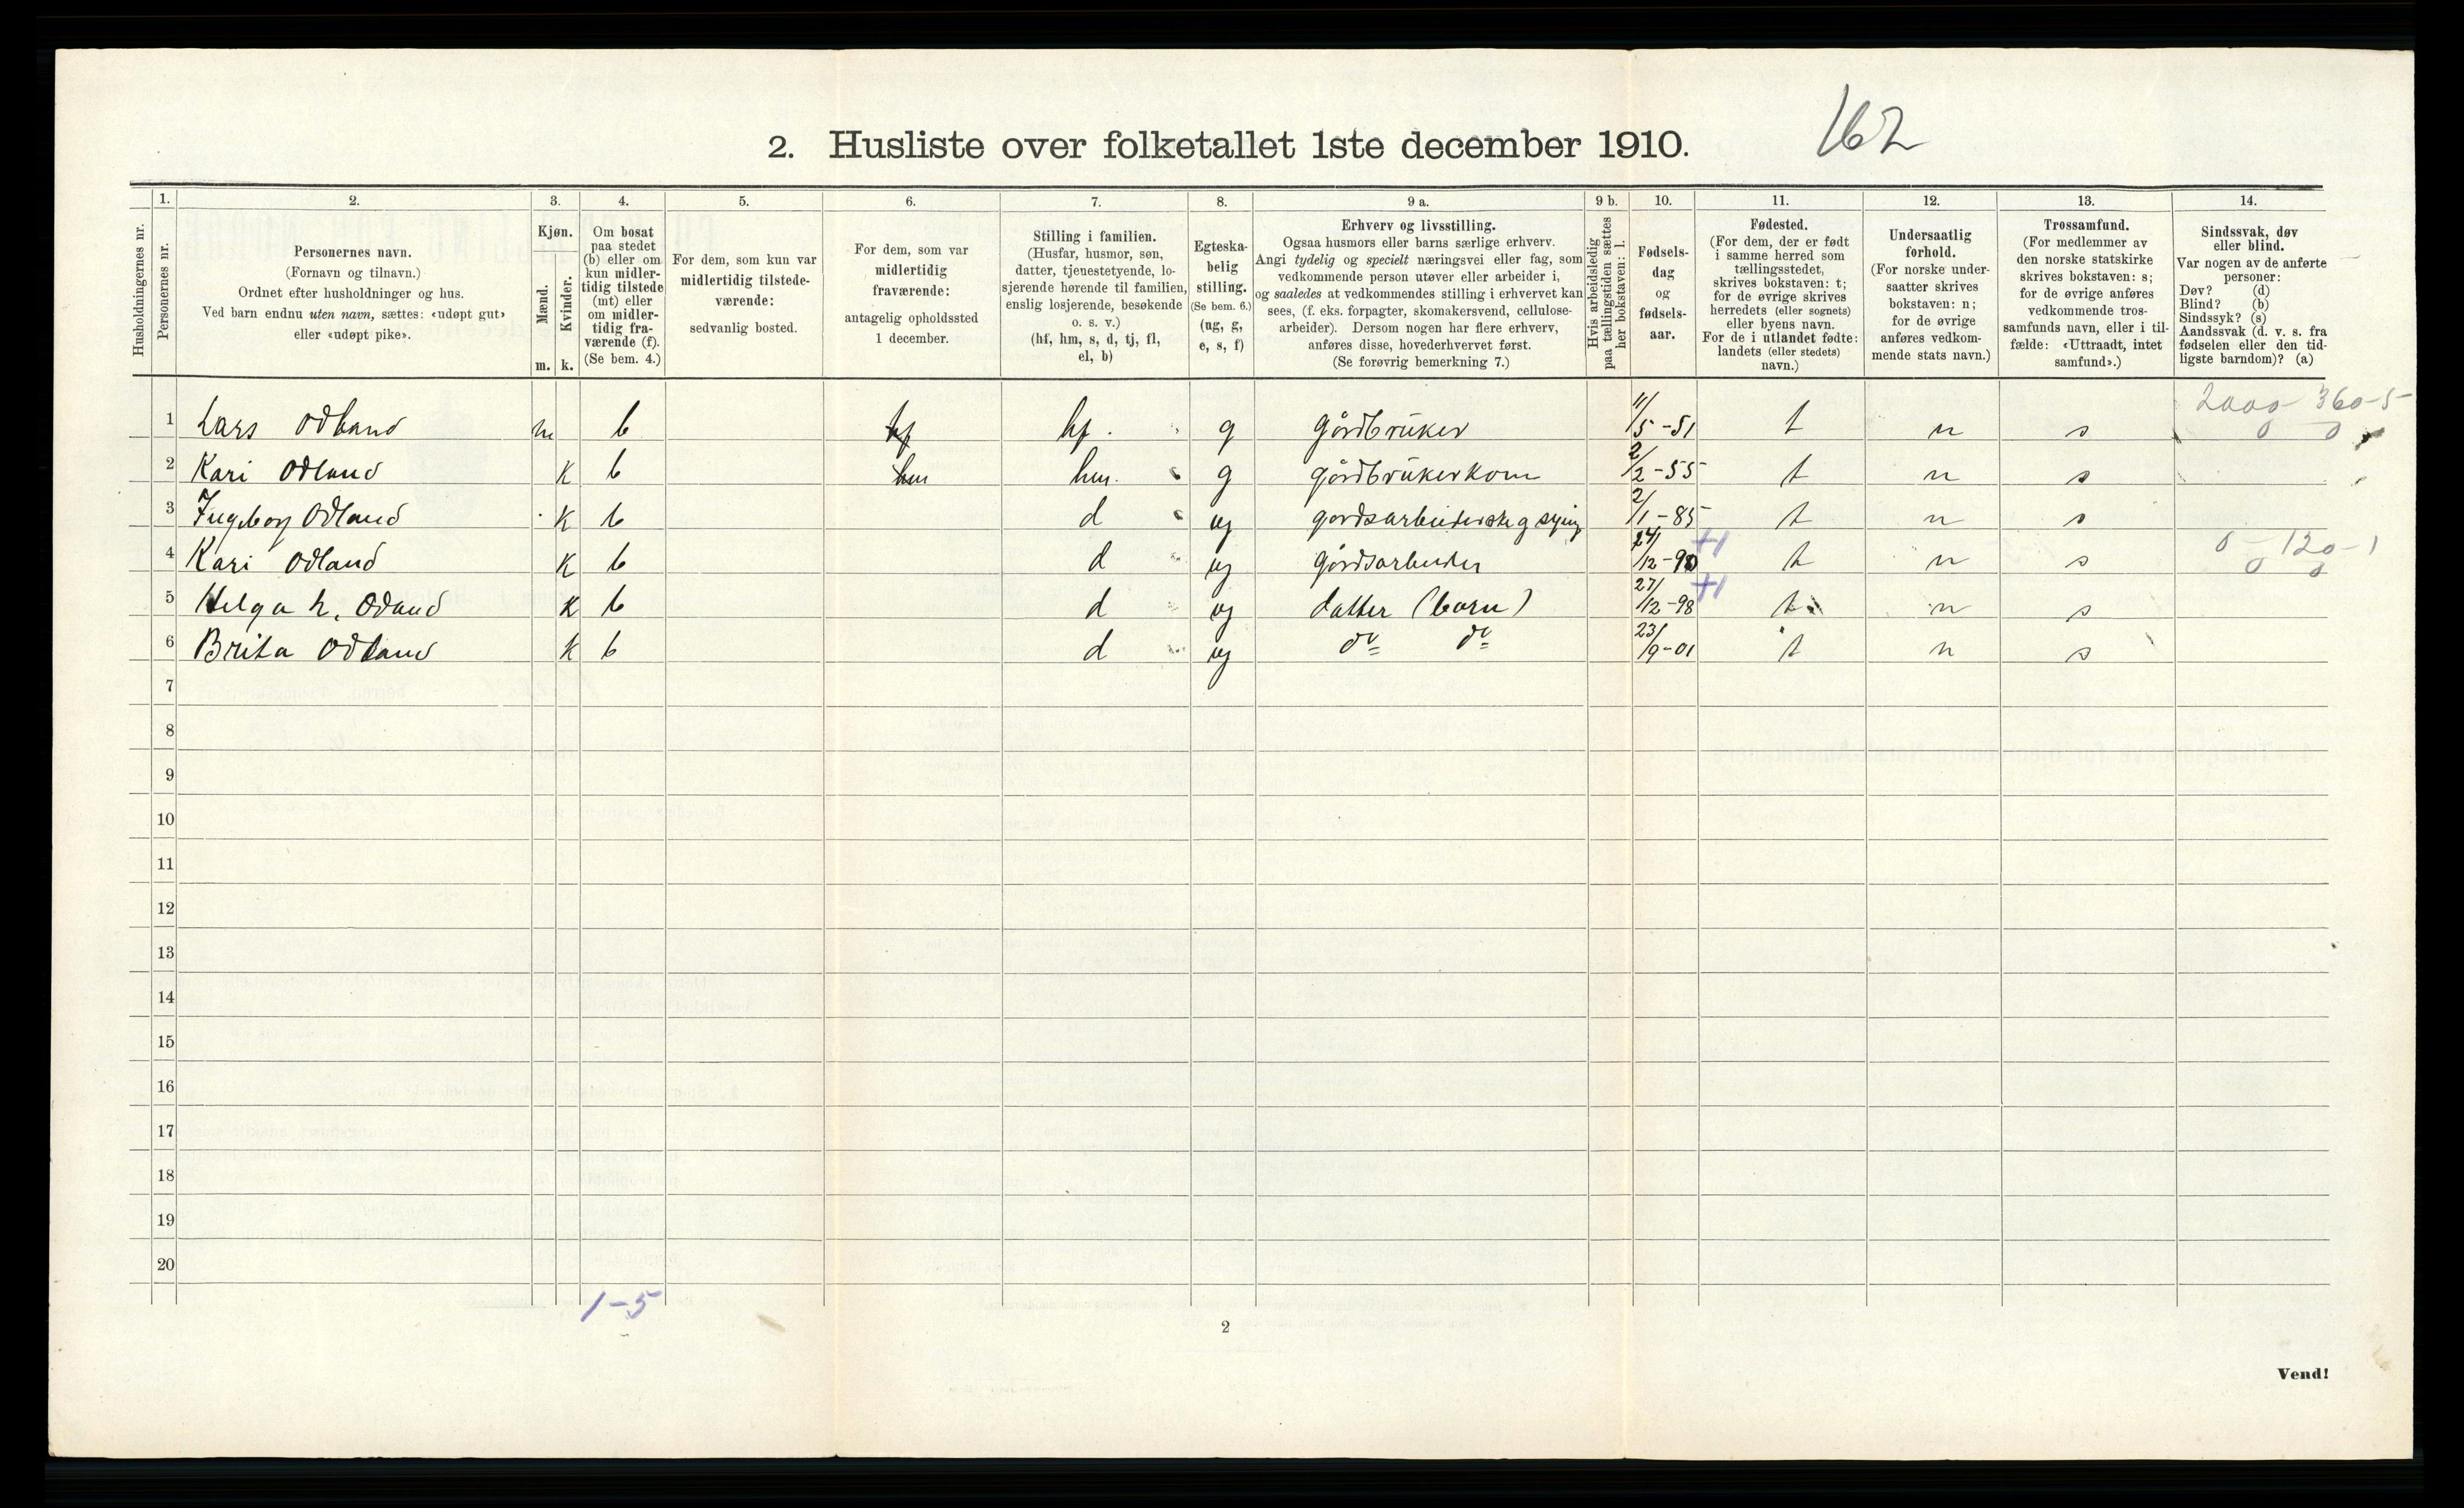 162
2. Husliste over folketallet 1ste december 1910.
Husholdningernes nr.
1. Personernes nr.
2. Personernes navn.
(Fornavn og tilnavn.)
Ordnet efter husholdninger og hus.
Ved barn endnu uten navn, sættes: «udøpt gut»
eller «udøpt pike».
3. Kjøn.
Mænd. m.
Kvinder. k.
4. Om bosat
paa stedet
(b) eller om
kun midler-
tidig tilstede
(mt) eller
om midler-
tidig fra-
værende (f).
(Se bem. 4.)
5. For dem, som kun var
midlertidig tilstede-
værende:
sedvanlig bosted.
6. For dem, som var
midlertidig
fraværende:
antagelig opholdssted
1 december.
7. Stilling i familien.
(Husfar, husmor, søn,
datter, tjenestetyende, lo-
sjerende hørende til familien,
enslig losjerende, besøkende
o. s. v.)
(hf, hm, s, d, tj, fl,
el, b)
8. Egteska-
belig
stilling.
(Se bem. 6.)
(ug, g,
e, s, f)
9 a. Erhverv og livsstilling.
Ogsaa husmors eller barns særlige erhverv.
Angi tydelig og specielt næringsvei eller fag, som
vedkommende person utøver eller arbeider i,
og saaledes at vedkommendes stilling i erhvervet kan
sees, (f. eks. forpagter, skomakersvend, cellulose-
arbeider). Dersom nogen har flere erhverv,
anføres disse, hovederhvervet først.
(Se forøvrig bemerkning 7.)
9 b. Hvis arbeidsledig
paa tællingstiden sættes
her bokstaven: l.
10. Fødsels-
dag
og
fødsels-
aar.
11. Fødested.
(For dem, der er født
i samme herred som
tællingsstedet,
skrives bokstaven: t;
for de øvrige skrives
herredets (eller sognets)
eller byens navn.
For de i utlandet fødte:
landets (eller stedets)
navn.)
12. Undersaatlig
forhold.
(For norske under-
saatter skrives
bokstaven: n;
for de øvrige
anføres vedkom-
mende stats navn.)
13. Trossamfund.
(For medlemmer av
den norske statskirke
skrives bokstaven: s;
for de øvrige anføres
vedkommende tros-
samfunds navn, eller i til-
fælde: «Uttraadt, intet
samfund».)
14. Sindssvak, døv
eller blind.
Var nogen av de anførte
personer:
Døv? (d)
Blind? (b)
Sindssyk? (s)
Aandssvak (d. v. s. fra
fødselen eller den tid-
ligste barndom)? (a)
2000 360-5
0 0
1 Lars Odland m b hf hf. g gårdbrüker 11/5-51 t n s
2 Kari Odland K b hm hm. g gårdbrükerkone 2/2-55 t n s
3 Ingeborg Odland K b d ug 2/1-85 t n s
4 Kari Odland K b d ug gårdsarbeider 24/12-90 +1 t n s 0-120-1
0 0
5 Helga L. Odand K b d ug datter (barn) 27/12-98 +1 t n s
6 Brita Odland K b d ug do do 23/9-01 t n s
7
8
9
10
11
12
13
14
15
16
17
18
19
20
1-5
2
Vend!